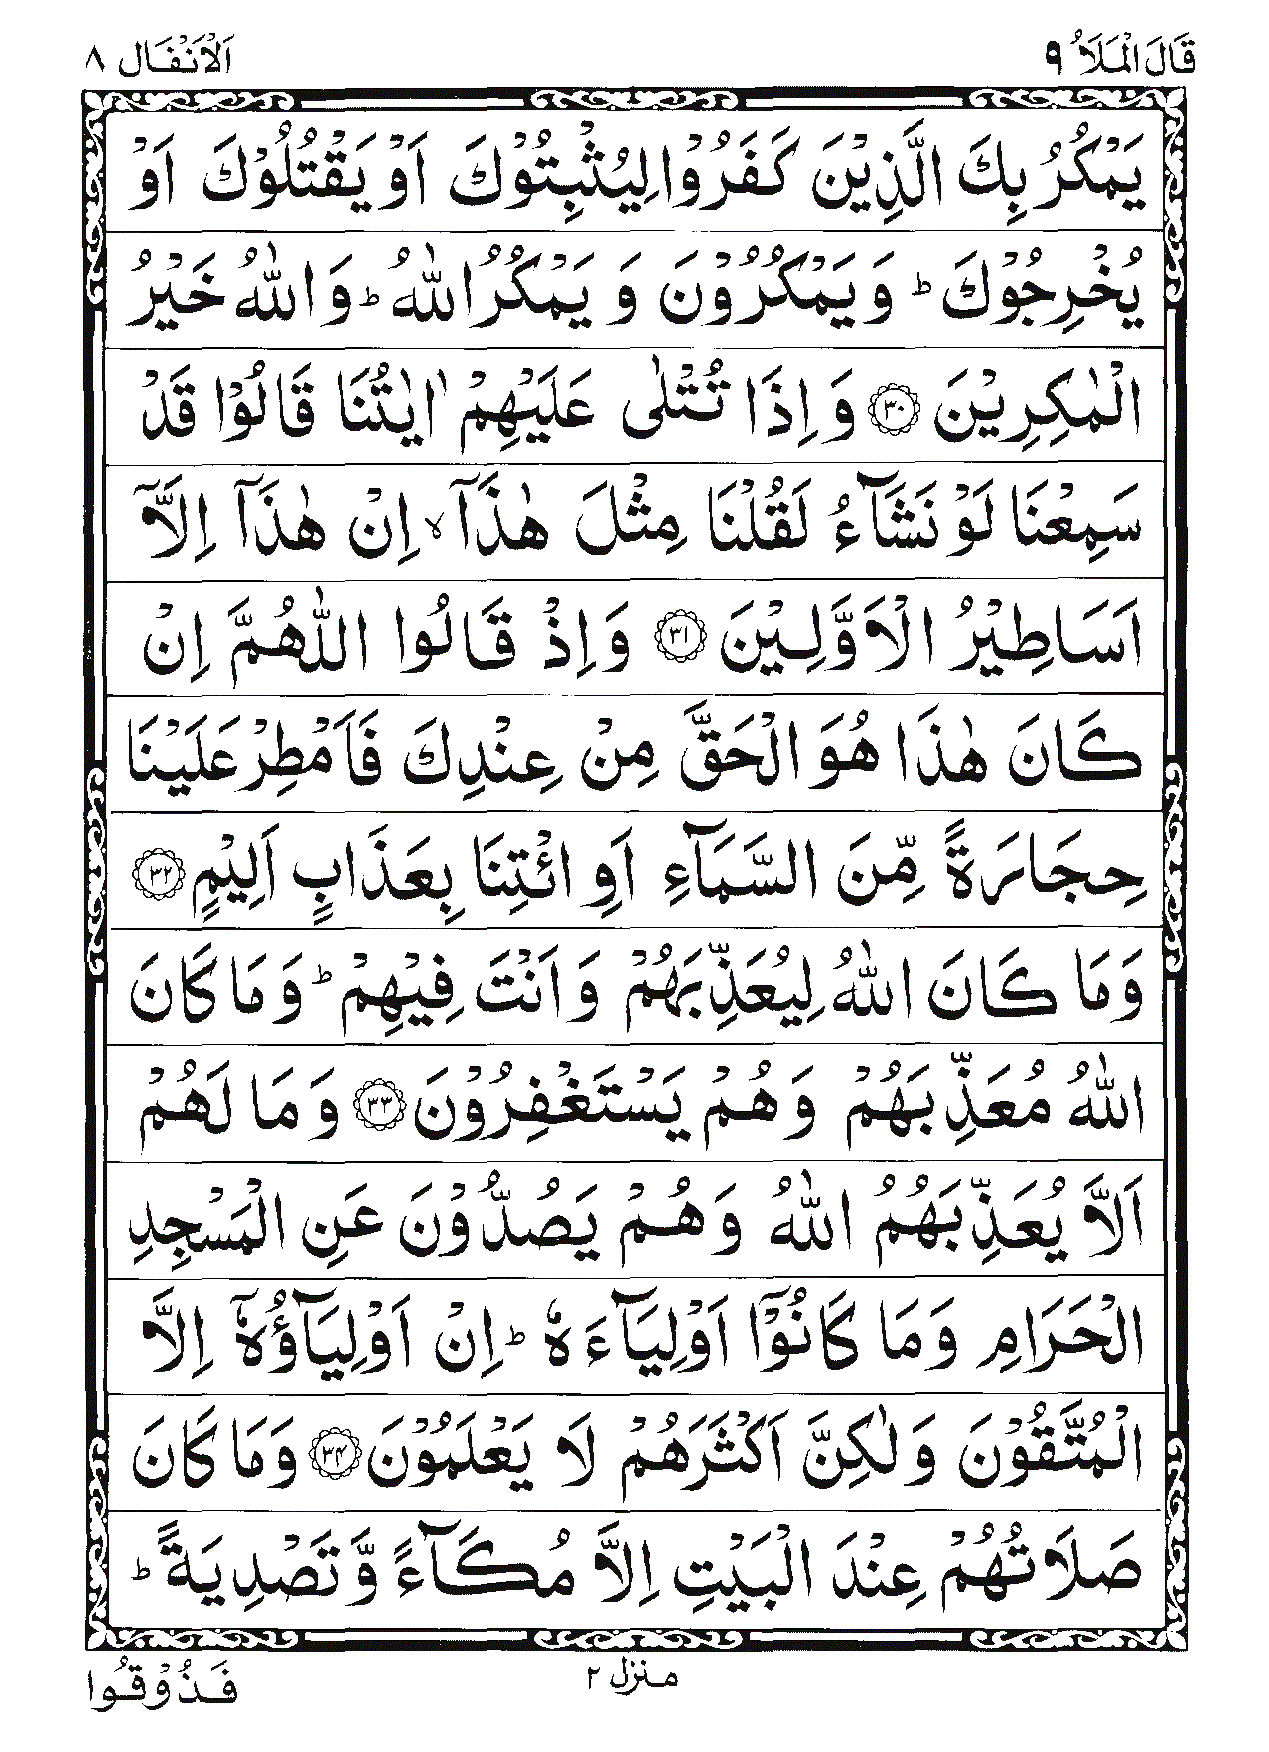 قَالَ الْمَلَاُ ٩
اَلْاَنْفَال ٨
يَمْكُرُ بِكَ الَّذِيْنَ كَفَرُوْا لِيُثْبِتُوْكَ اَوْ يَقْتُلُوْكَ اَوْ
يُخْرِجُوْكَ ؕ وَ يَمْكُرُوْنَ وَ يَمْكُرُ اللّٰهُ ؕ وَ اللّٰهُ خَيْرُ
الْمٰكِرِيْنَ ۝٣٠ وَ اِذَا تُتْلٰى عَلَيْهِمْ اٰيٰتُنَا قَالُوْا قَدْ
سَمِعْنَا لَوْ نَشَآءُ لَقُلْنَا مِثْلَ هٰذَاۤ ۙ اِنْ هٰذَاۤ اِلَّاۤ
اَسَاطِيْرُ الْاَوَّلِيْنَ ۝٣١ وَ اِذْ قَالُوا اللّٰهُمَّ اِنْ
كَانَ هٰذَا هُوَ الْحَقَّ مِنْ عِنْدِكَ فَاَمْطِرْ عَلَيْنَا
حِجَارَةً مِّنَ السَّمَآءِ اَوِ ائْتِنَا بِعَذَابٍ اَلِيْمٍ ۝٣٢
وَ مَا كَانَ اللّٰهُ لِيُعَذِّبَهُمْ وَ اَنْتَ فِيْهِمْ ؕ وَ مَا كَانَ
اللّٰهُ مُعَذِّبَهُمْ وَ هُمْ يَسْتَغْفِرُوْنَ ۝٣٣ وَ مَا لَهُمْ
اَلَّا يُعَذِّبَهُمُ اللّٰهُ وَ هُمْ يَصُدُّوْنَ عَنِ الْمَسْجِدِ
الْحَرَامِ وَ مَا كَانُوْۤا اَوْلِيَآءَهٗ ؕ اِنْ اَوْلِيَآؤُهٗۤ اِلَّا
الْمُتَّقُوْنَ وَ لٰكِنَّ اَكْثَرَهُمْ لَا يَعْلَمُوْنَ ۝٣٤ وَ مَا كَانَ
صَلَاتُهُمْ عِنْدَ الْبَيْتِ اِلَّا مُكَآءً وَّ تَصْدِيَةً ؕ
منزل ٢
فَذُوْقُوا